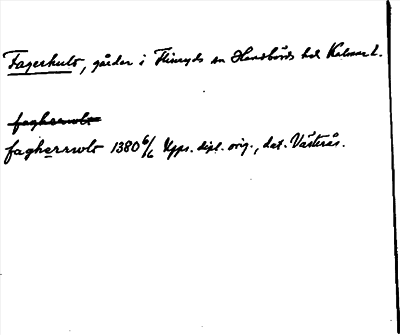 Fagerhult, gårdar i Hinryds sn Handbörds hd Kalmar l.
faghærwlt
faghærrwlt 1380 6/6 Upps. dipl. orig., dat. Västerås.